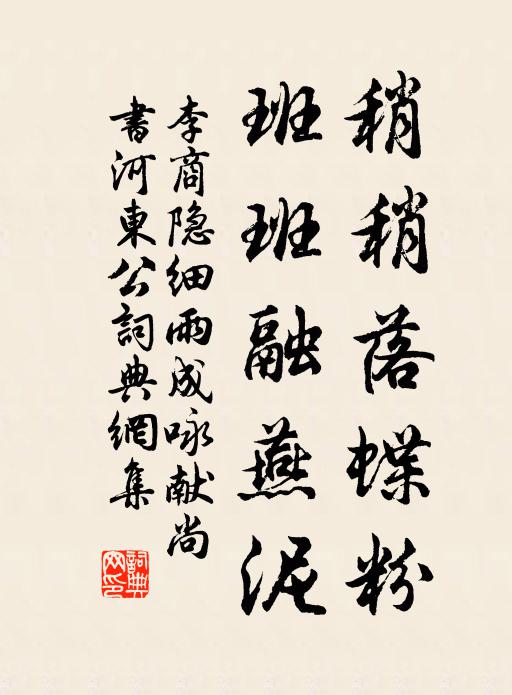 稍稍落蝶粉
班班融燕泥
李商隐细雨成咏献尚
書河東公詞典網集
詞典网印